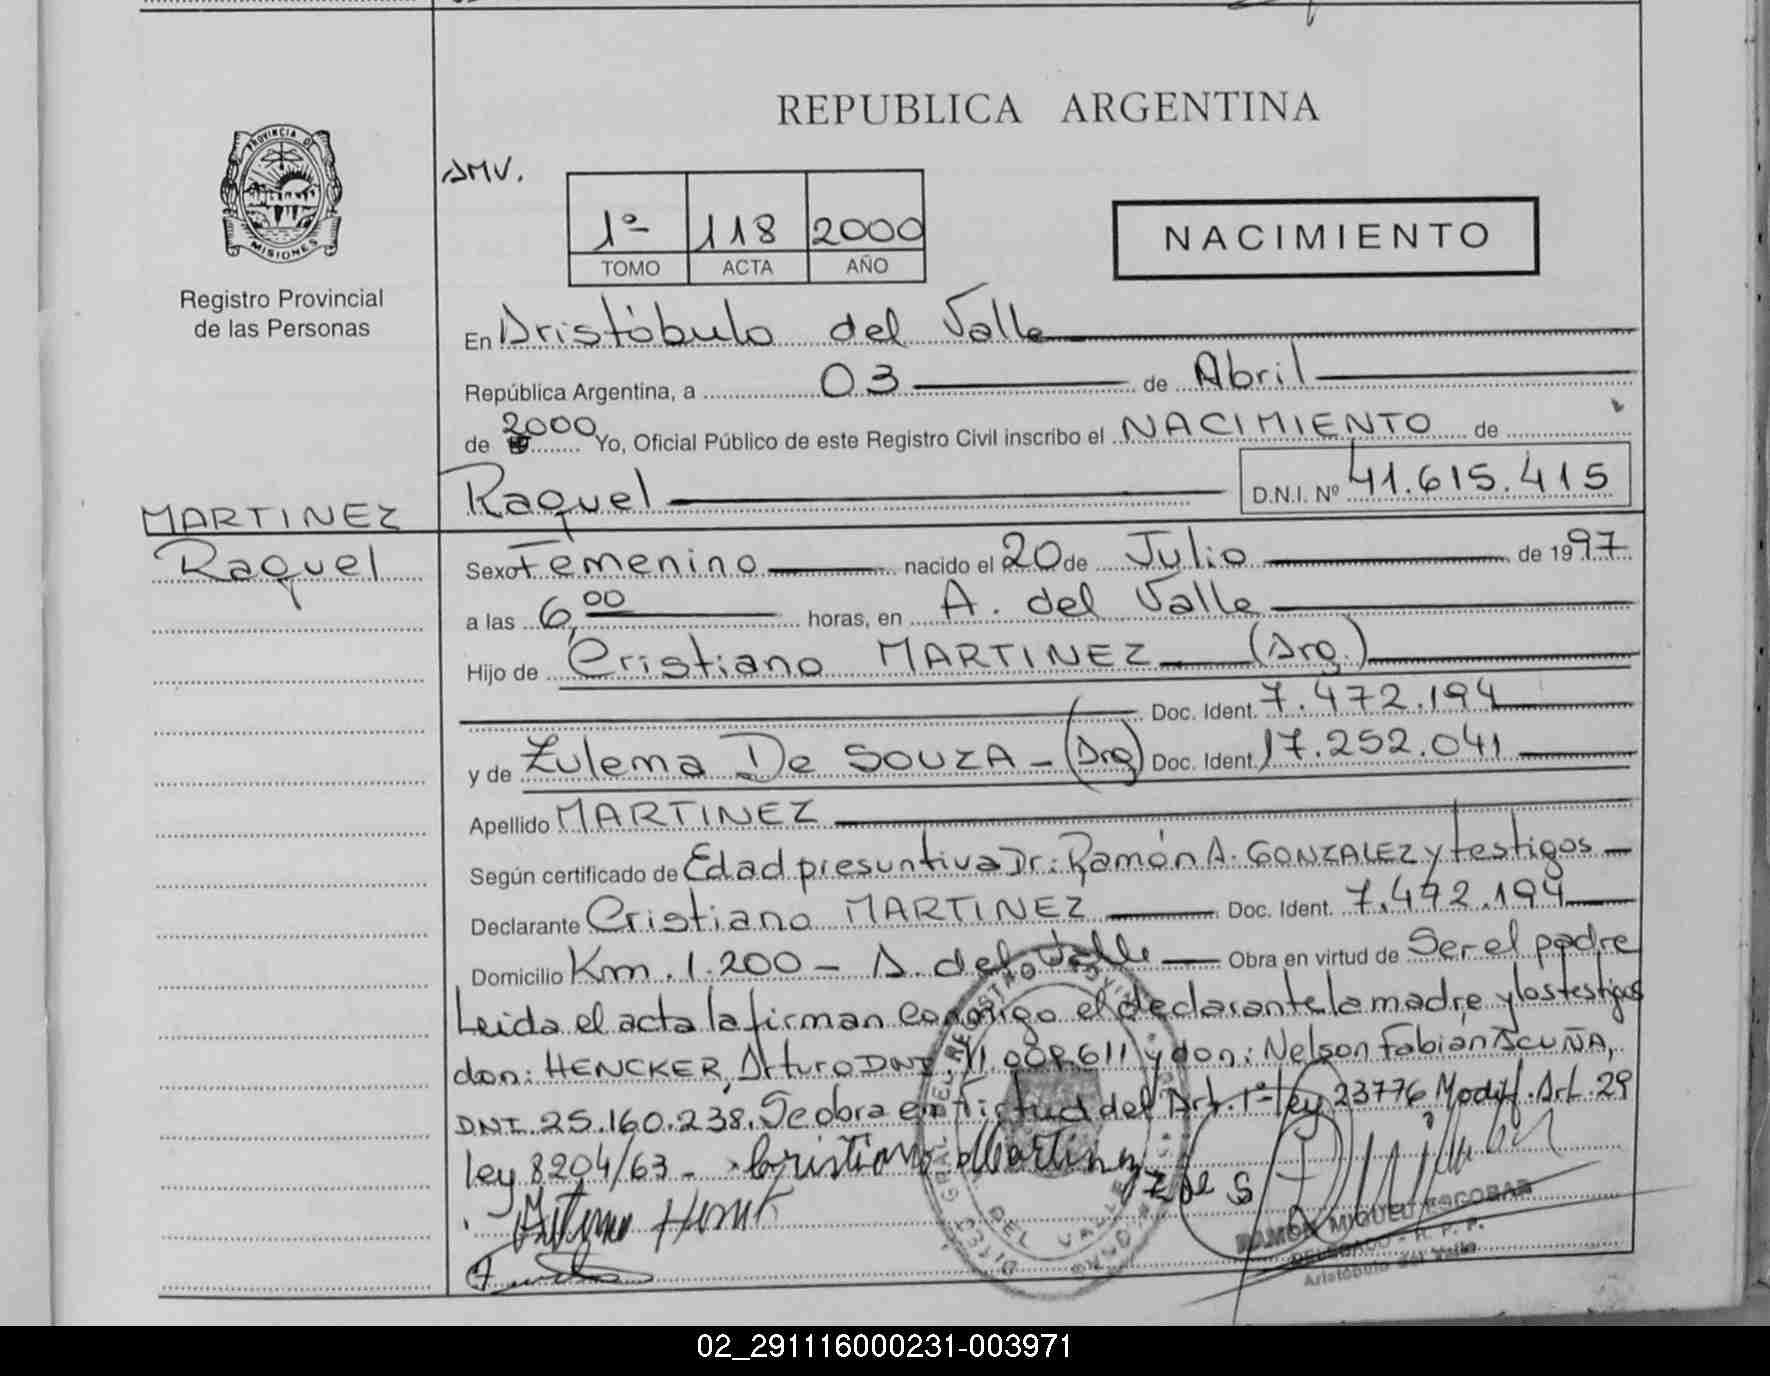 REPUBLICA ARGENTINA
PROVINCIA DE
MISIONES
Registro Provincial
de las Personas
AMV.
1º 118 2000
TOMO ACTA AÑO
NACIMIENTO
En Aristóbulo del Valle
República Argentina, a 03 de Abril
de 2000 Yo, Oficial Público de este Registro Civil inscribo el NACIMIENTO de
Raquel D.N.I. Nº 41.615.415
MARTINEZ
Raquel
Sexo Femenino nacido el 20 de Julio de 1997
a las 6,00 horas, en A. del Valle
Hijo de Cristiano MARTINEZ (Arg.)
Doc. Ident. 7.472.194
y de Zulema De SOUZA - (Arg) Doc. Ident. 17.252.041
Apellido MARTINEZ
Según certificado de Edad presuntiva Dr: Ramón A. GONZALEZ y testigos
Declarante Cristiano MARTINEZ Doc. Ident. 7.472.194
Domicilio Km. 1.200 - A. del Valle Obra en virtud de Ser el padre
Leida el acta la firman conmigo el declarante la madre y los testigos
don: HENCKER, Arturo DNI. 11.008.611 y don: Nelson Fabián ACUÑA,
DNI. 25.160.238. Se obra en virtud del Art. 1º ley 23776 Modif. Art. 29
ley 8204/63 - Cristiano Martinez
RAMON MIGUEL ESCOBAR
DELEGADO - R. P. P.
Aristóbulo del Valle
DEL VALLE
02_291116000231-003971